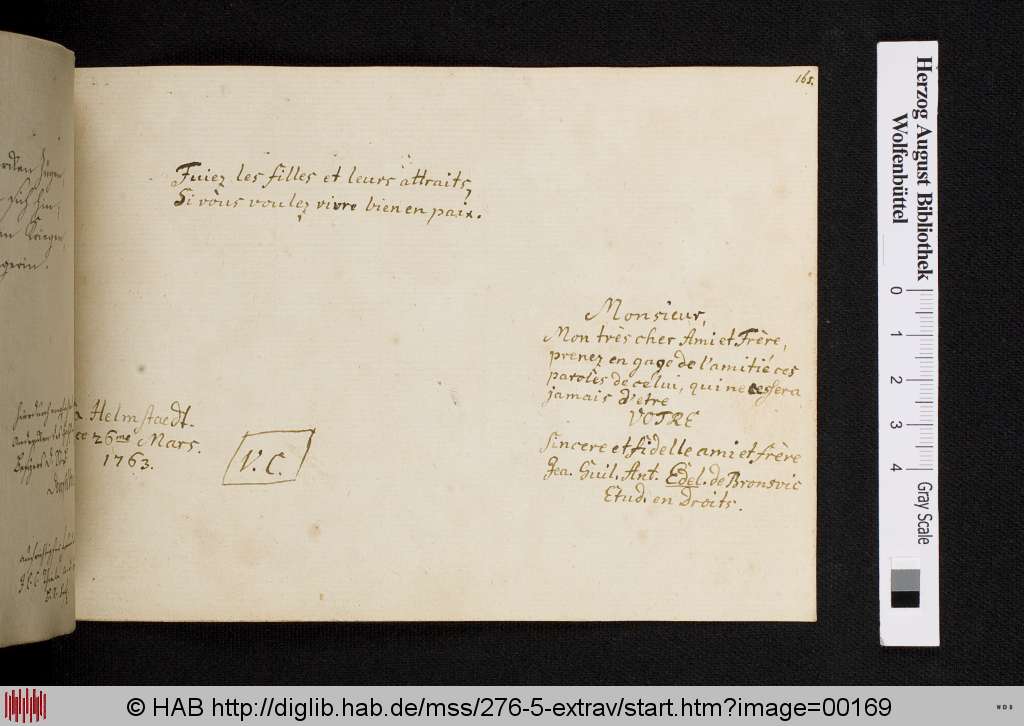 165.
Fuiez les filles et leurs attraits,
Si vous voulez vivre bien en paix.
Monsieur,
Mon très cher Ami et Frère,
prenez en gage de l'amitié ces
paroles de celui, qui ne cessera
jamais d'etre
VOTRE
sincere et fidelle ami et frère
Jea. Guil. Ant. Edel. de Bronsvic
Etud. en Droits.
a Helmstaedt.
ce 26me Mars.
1763.
V. C.
Herzog August Bibliothek
Wolfenbüttel
0
1
2
3
4
Gray Scale
© HAB http://diglib.hab.de/mss/276-5-extrav/start.htm?image=00169
WDB